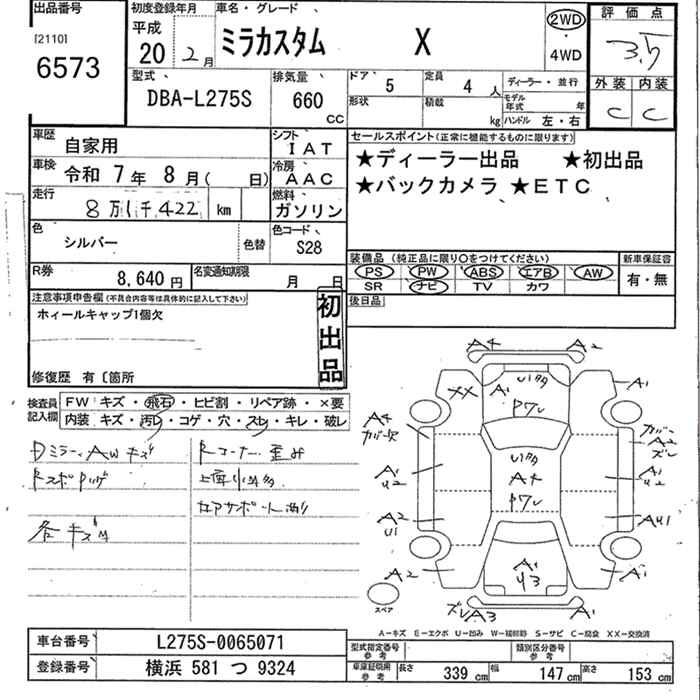 出品番号 初度登録年月 車名・グレード 評価点
[2110] 平成 2WD
6573 20年 2月 ミラカスタム X 4WD 3.5
型式 排気量 ドア 5 定員 4人 ディーラー・並行 外装 内装
DBA-L275S 660 CC 形状 積載 kg モデル年式 年 C C
ハンドル 左・右
車歴 自家用 シフト IAT セールスポイント(正常に機能するものに限ります)
車検 令和 7年 8月( 日) 冷房 AAC ★ディーラー出品 ★初出品
走行 8万1千422 km 燃料 ガソリン ★バックカメラ ★ETC
色 シルバー 色替 色コード S28
装備品 (純正品に限り○をつけてください) 新車保証書
R券 8,640円 名変通知期限 月 日 PS PW ABS エアB AW 有・無
SR ナビ TV カワ
注意事項申告欄(不具合内容等は具体的に記入して下さい) 初出品 後日品
ホィールキャップ1個欠
修復歴 有〔箇所
検査員記入欄 FW キズ・飛石・ヒビ割・リペア跡・×要
内装 キズ・汚れ・コゲ・穴・スレ・キレ・破レ
Dミラー、AWキズ Rコーナー歪み
各キズ
A4 A2
XX A1 A1
A4 A2 ズレ
A1 U2 A4 A1 U2
A2 U1 AU1
A2 A1 U3 A1
スペア ズレA3 A1
A-キズ E-エクボ U-凹み W-補修跡 S-サビ C-腐食 XX-交換済
車台番号 L275S-0065071 型式指定番号 参考 類別区分番号 参考
登録番号 横浜 581 つ 9324 車庫証明用 参考 長さ 339cm 幅 147cm 高さ 153cm